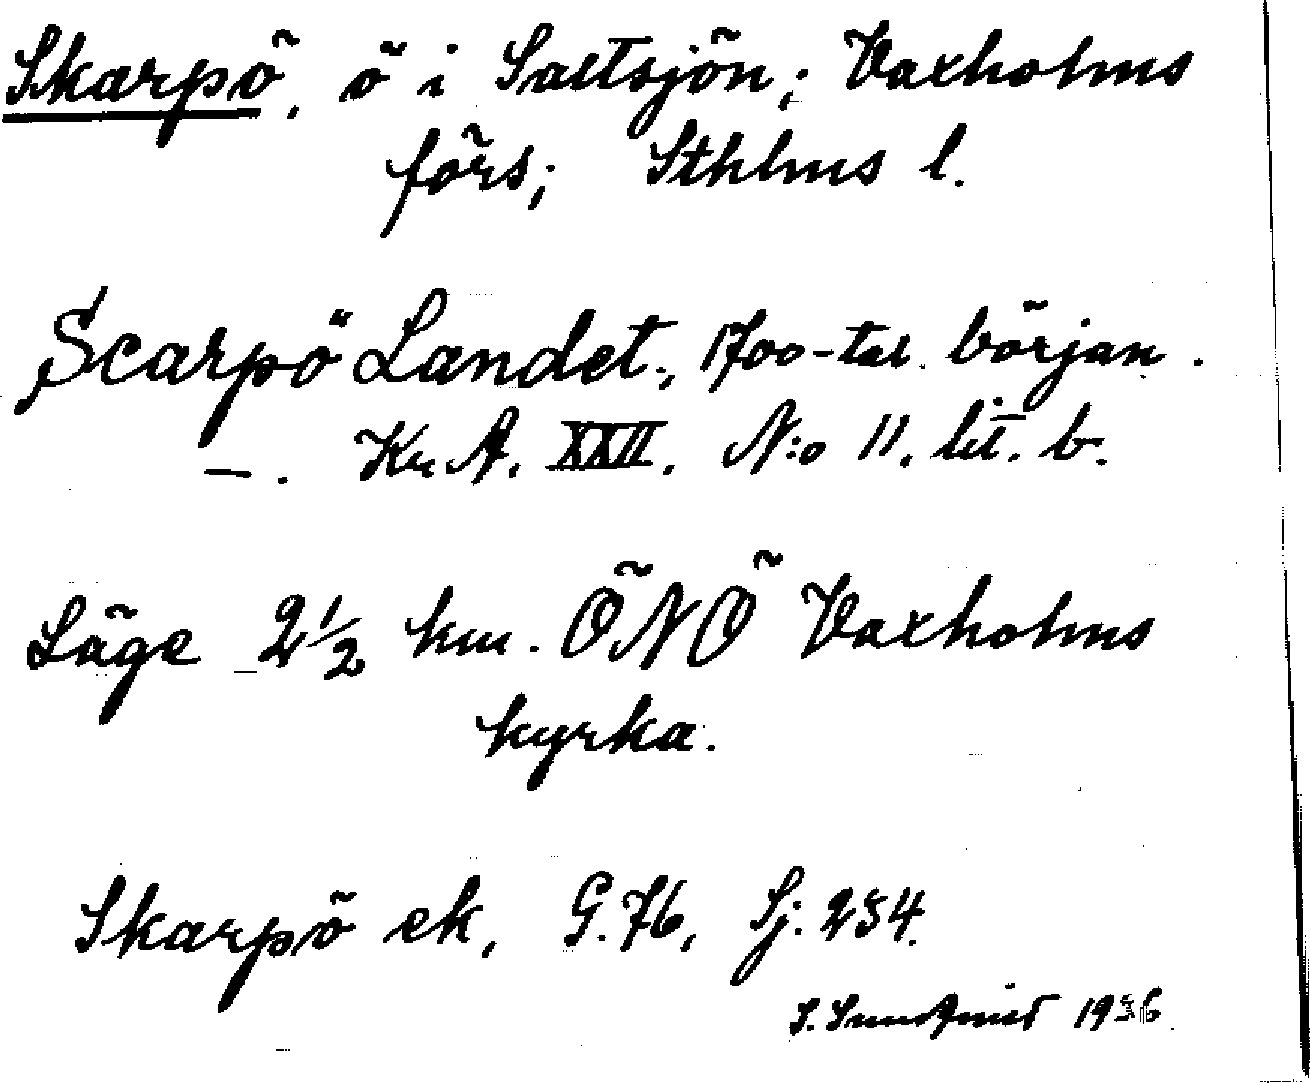 Skarpö, ö i Saltsjön; Vaxholms
förs; Sthlms l.
Scarpö Landet, 1700-tal. början.
—. Kr A. XXII. N:o 11. lit. b.
Läge 2 1/2 km. ÖNÖ Vaxholms
kyrka.
Skarpö ek, G.76, Sj. 234.
S. Sundqvist 1936